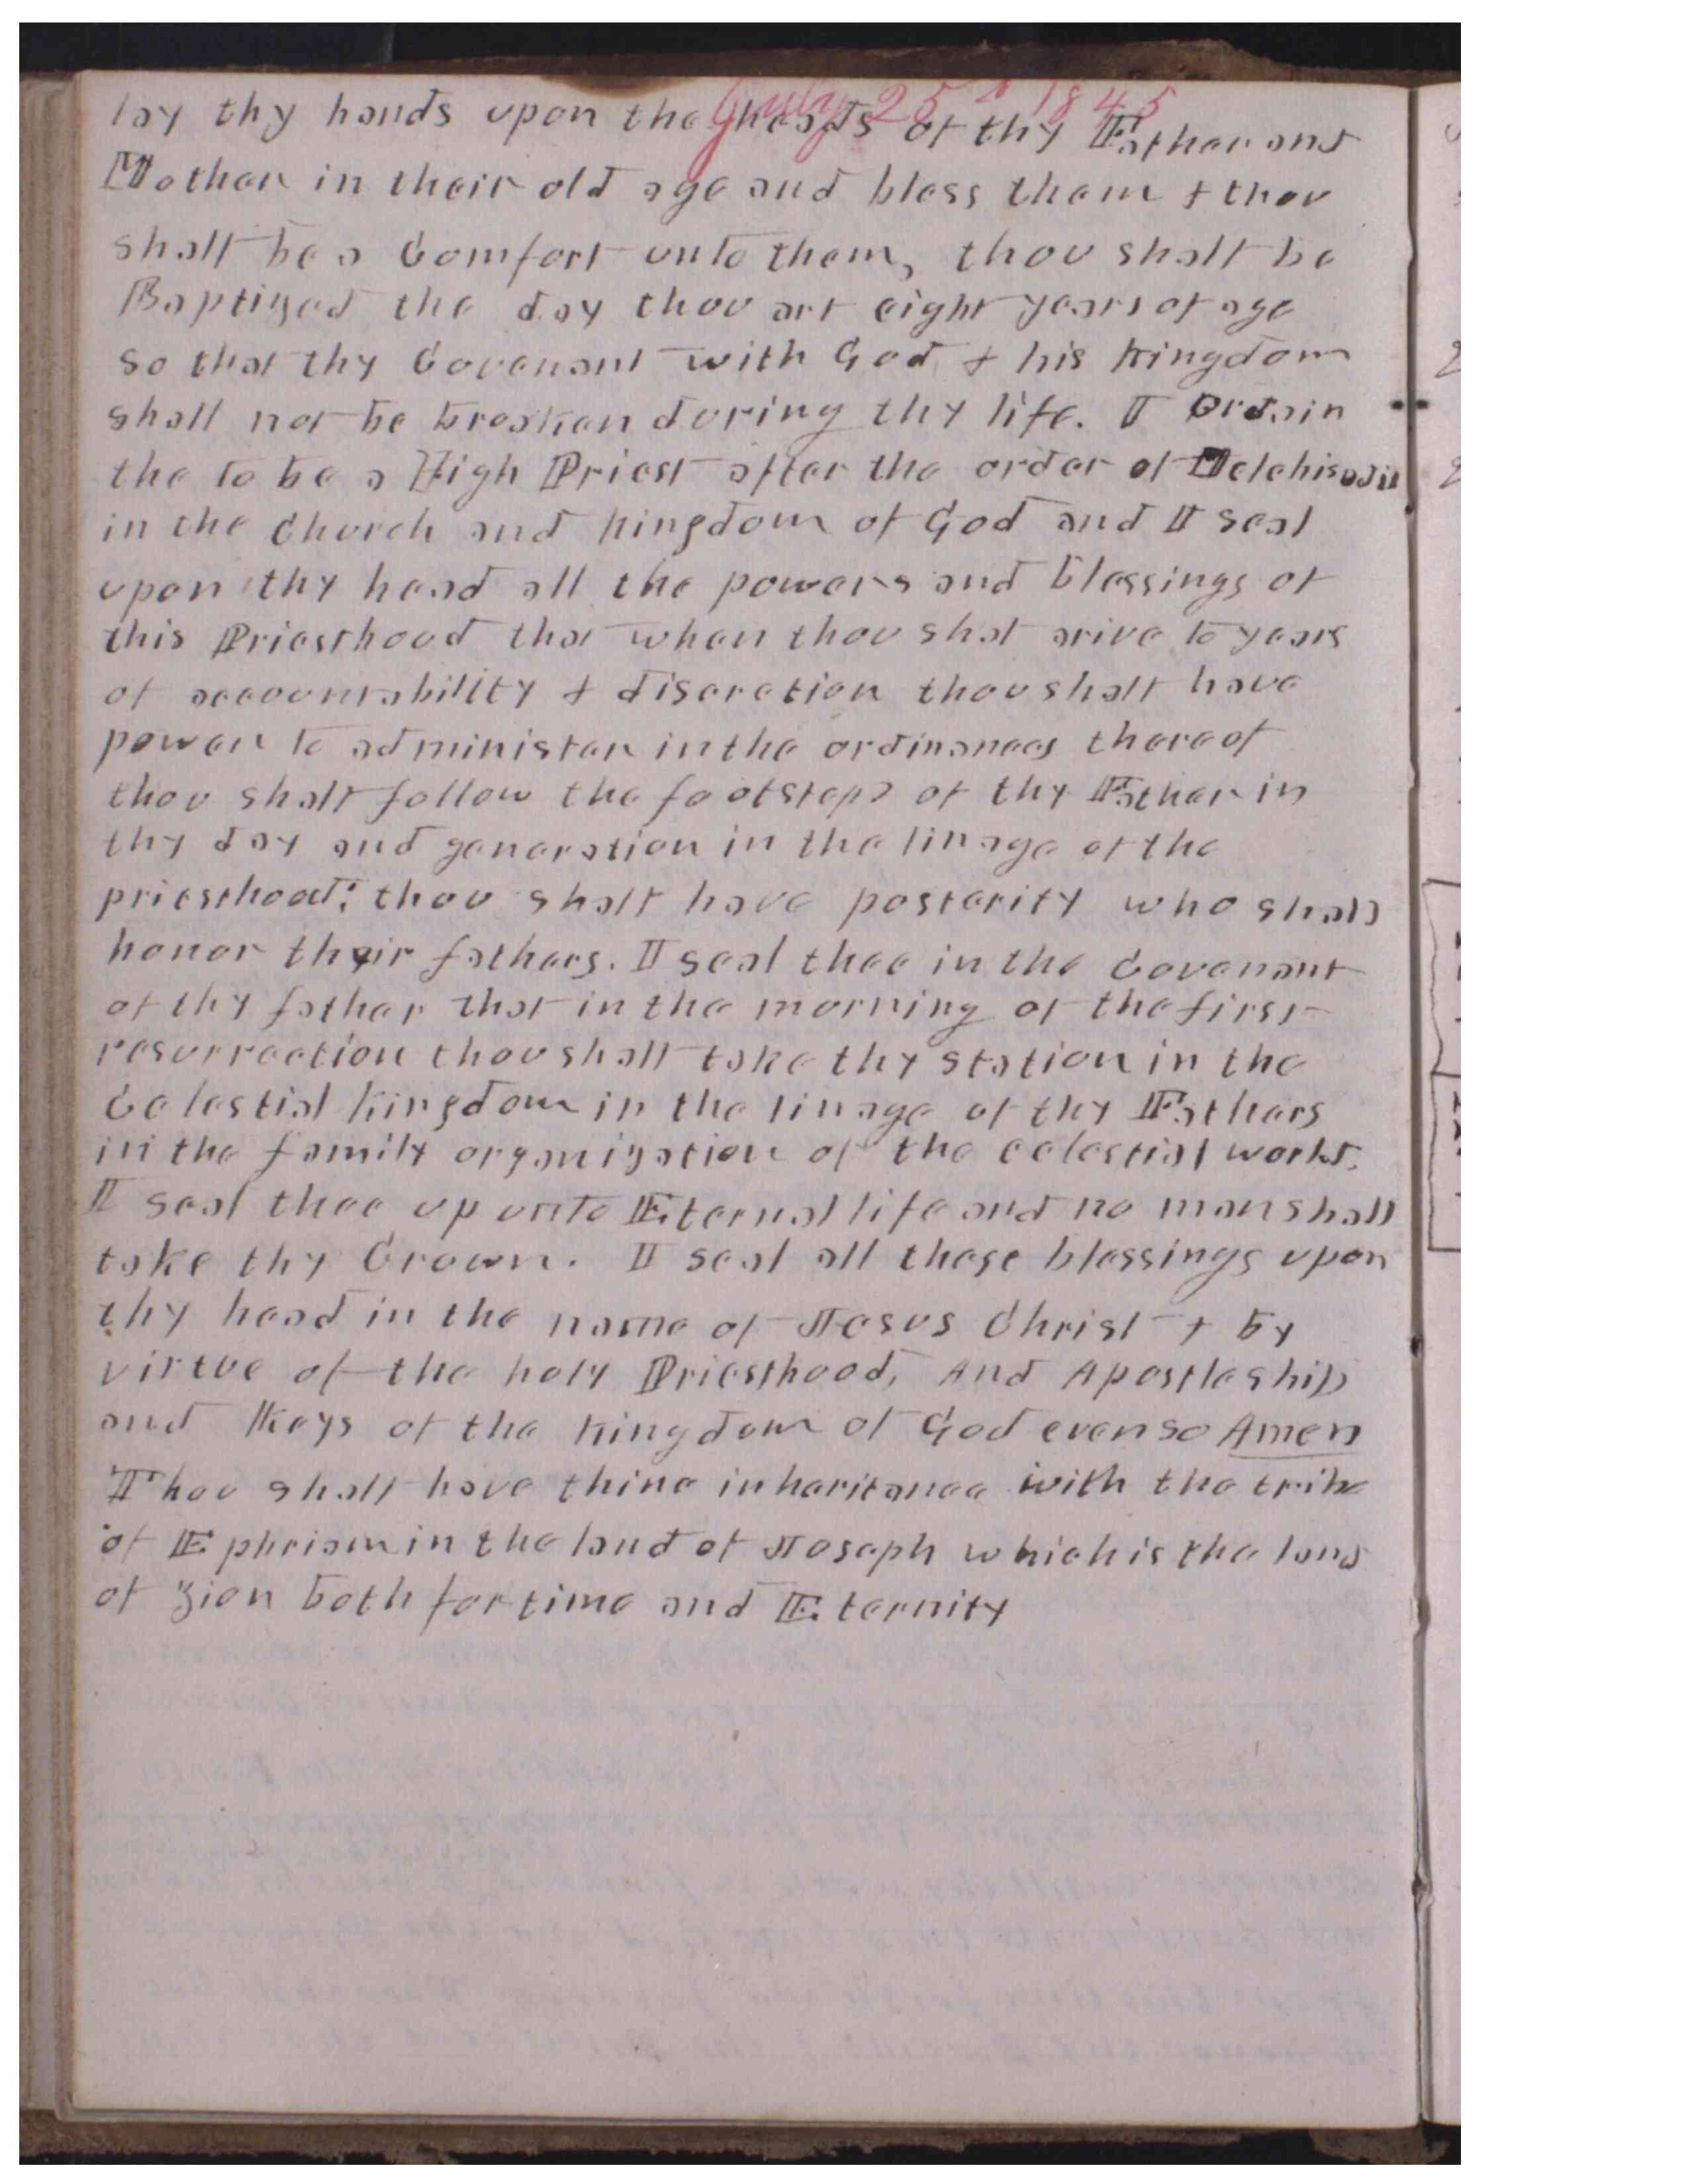 July 25th 1845
lay thy hands upon the heads of thy Father and
Mother in their old age and bless them & thou
shall be a Comfort unto them, thou shalt be
Baptized the day thou art eight years of age
so that thy Covenant with God & his kingdom
shall not be broaken during thy life. I Ordain
the to be a High Priest after the order of Melchisedic
in the Church and kingdom of God and I seal
upon thy head all the powers and blessings of
this Priesthood that when thou shat arive to years
of accountability & discretion thou shalt have
power to administer in the ordinances thereof
thou shalt follow the footsteps of thy Father in
thy day and generation in the linage of the
priesthood; thou shalt have posterity who shall
honor their fathers. I seal thee in the Covenant
of thy father that in the morning of the first
resurrection thou shall take thy station in the
Celestial kingdom in the linage of thy Fathers
in the family organization of the celestial world.
I seal thee up unto Eternal life and no man shall
take thy Crown. I seal all these blessings upon
thy head in the name of Jesus Christ & by
virtue of the holy Priesthood, And Apostleship
and Keys of the kingdom of God even so Amen
Thou shall have thine inheritance with the tribe
of Ephriam in the land of Joseph which is the land
of Zion both for time and Eternity